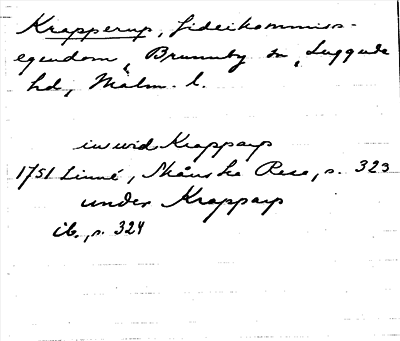 Krapperup, fideikommiss-
egendom, Brunnby sn, Luggude
hd, Malm. l.
in wid Krapparp
1751 Linné, Skånska Resa, s. 323
under Krapparp
ib., s. 324